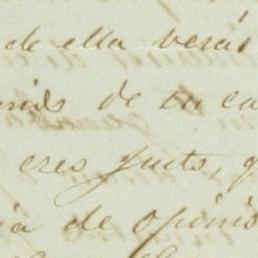 de ella verás
de su ca
eres justo, q
ia de opinio